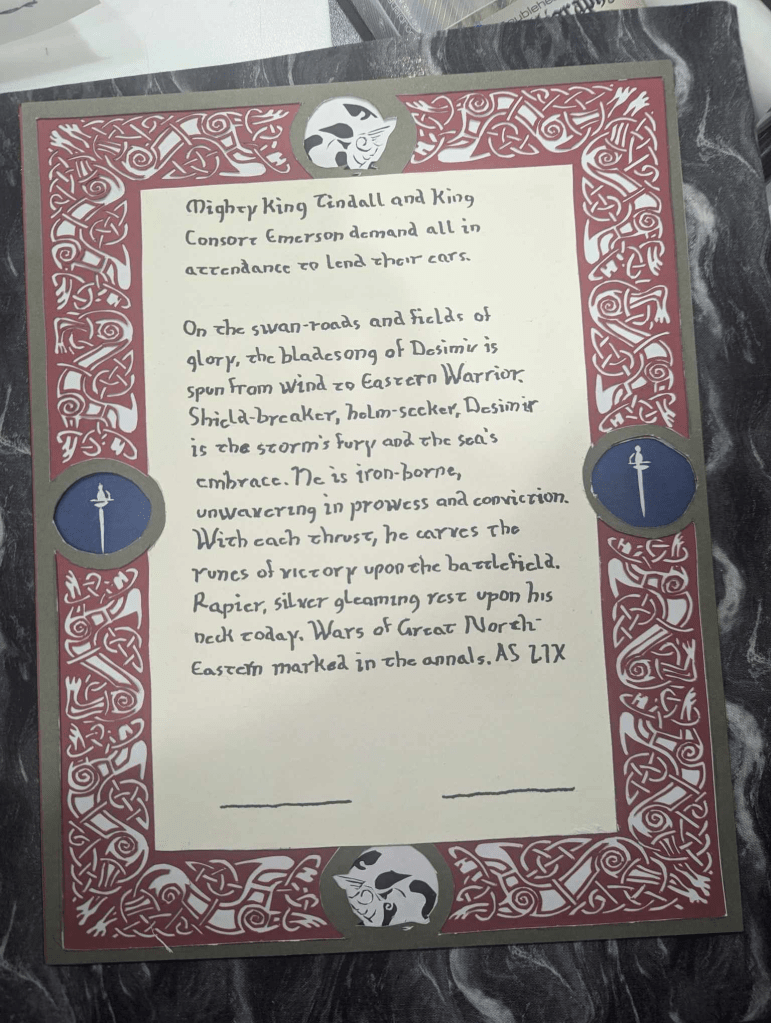 Mighty King Tindall and King
Consort Emerson demand all in
attendance to lend their ears.
On the swan-roads and fields of
glory, the bladesong of Desimir is
spun from wind to Eastern Warrior.
Shield-breaker, helm-seeker, Desimir
is the storm's fury and the sea's
embrace. He is iron-borne,
unwavering in prowess and conviction.
With each thrust, he carves the
runes of victory upon the battlefield.
Rapier, silver gleaming rest upon his
neck today. Wars of Great North-
Eastern marked in the annals. AS LIX